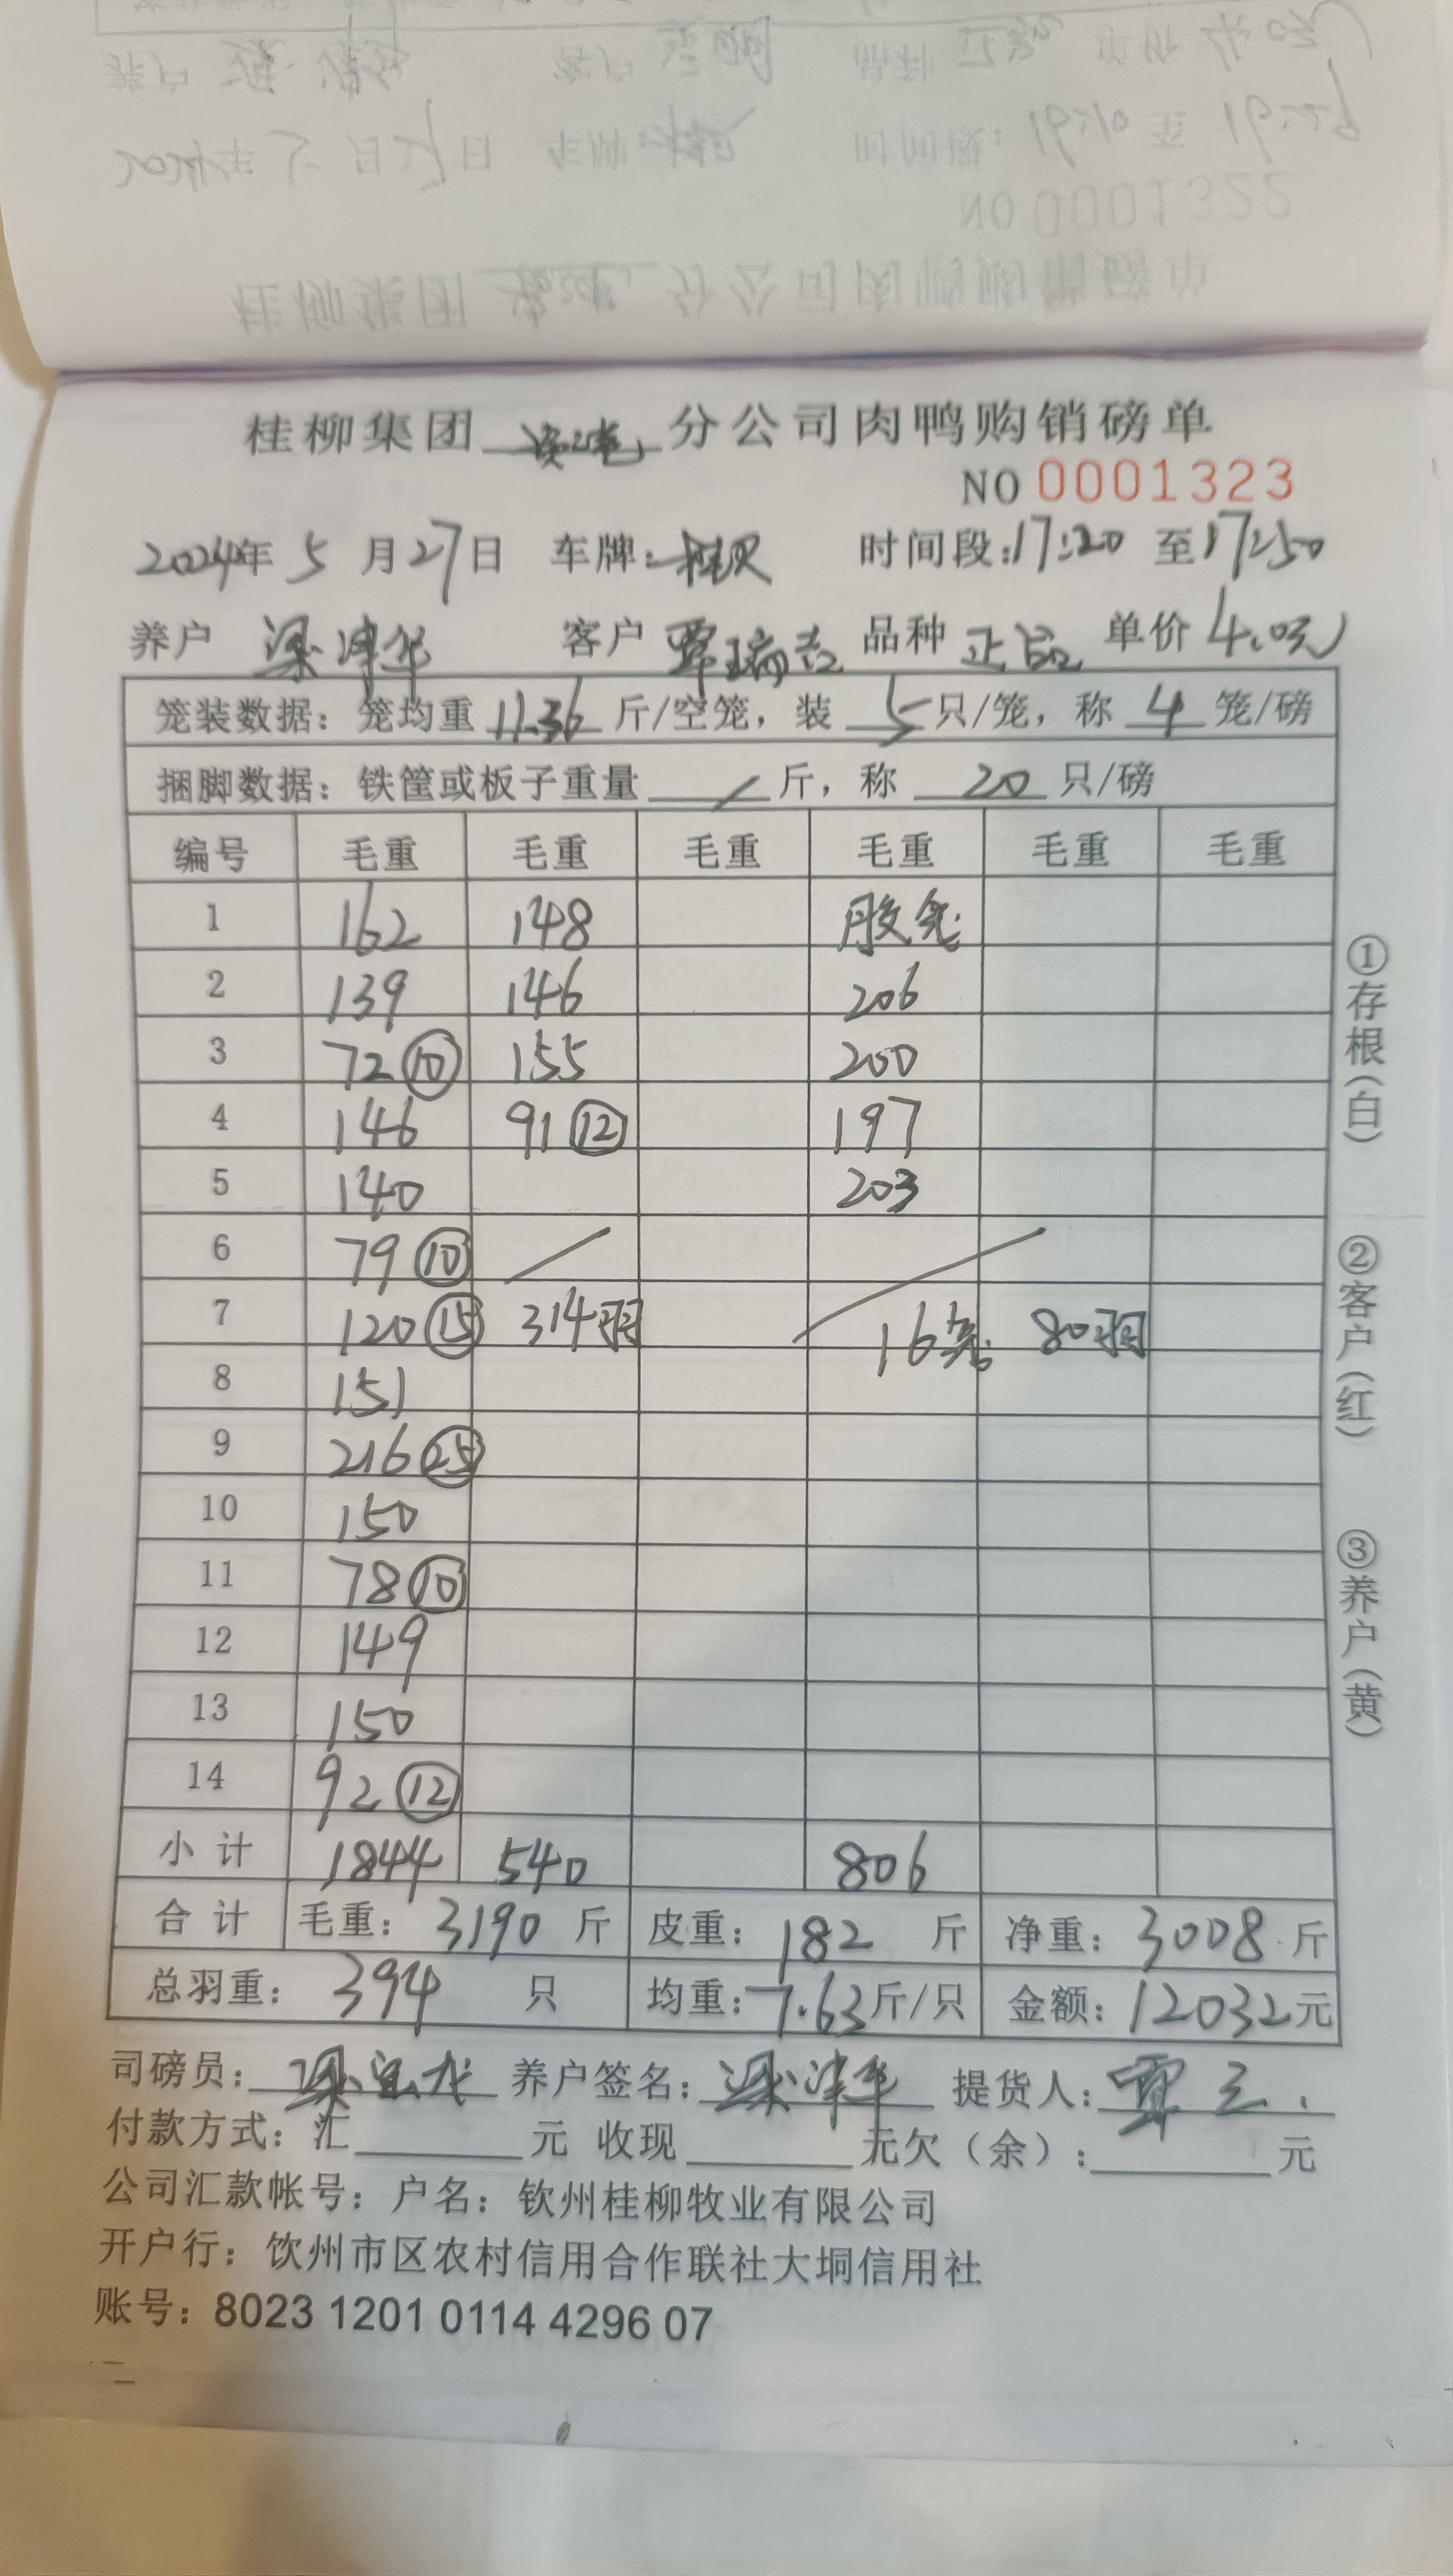 NO 0001322
桂柳集团 分公司肉鸭购销磅单
NO 0001323
2024年 5 月 27 日 车牌: 时间段:17:20 至 17:50
养户 梁 华 客户 覃瑞 品种 正品 单价 4.0元
笼装数据: 笼均重 11.36 斤/空笼, 装 5 只/笼, 称 4 笼/磅
捆脚数据: 铁筐或板子重量 / 斤, 称 20 只/磅
编号 毛重 毛重 毛重 毛重 毛重 毛重
1 162 148
2 139 146 206
3 72 ⑩ 155 200
4 146 91 ⑫ 197
5 140 203
6 79 ⑩
7 120 ⑮ 314羽 16笼 80羽
8 151
9 216 ㉕
10 150
11 78 ⑩
12 149
13 150
14 92 ⑫
小 计 1844 540 806
合 计 毛重: 3190 斤 皮重: 182 斤 净重: 3008 斤
总羽重: 394 只 均重: 7.63 斤/只 金额: 12032 元
司磅员: 梁 龙 养户签名: 梁 华 提货人: 覃
付款方式: 汇 元 收现 元欠(余): 元
公司汇款帐号: 户名: 钦州桂柳牧业有限公司
开户行: 饮州市区农村信用合作联社大垌信用社
账号: 8023 1201 0114 4296 07
①存根(白)
②客户(红)
③养户(黄)